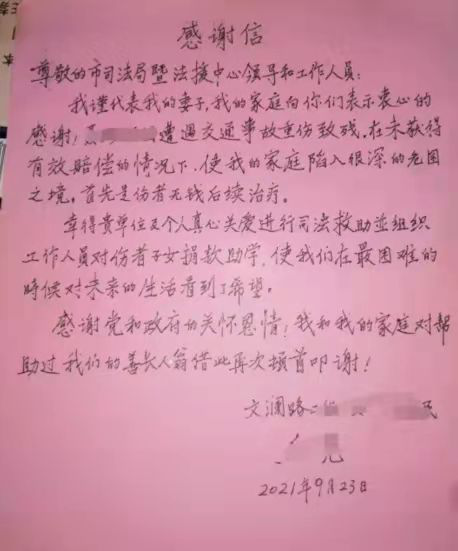 感谢信
尊敬的市司法局暨法援中心领导和工作人员:
我谨代表我的妻子,我的家庭向你们表示衷心的
感谢! 遭遇交通事故重伤致残,在未获得
有效赔偿的情况下,使我的家庭陷入很深的危困
之境,首先是伤者无钱后续治疗。
幸得贵单位及个人真心关爱进行司法救助並组织
工作人员对伤者子女捐款助学,使我们在最困难的
時候对未来的生活看到了希望。
感谢党和政府的关怀恩情!我和我的家庭对帮
助过我们的善长人翁借此再次顿首叩谢!
文澜路
2021年9月23日